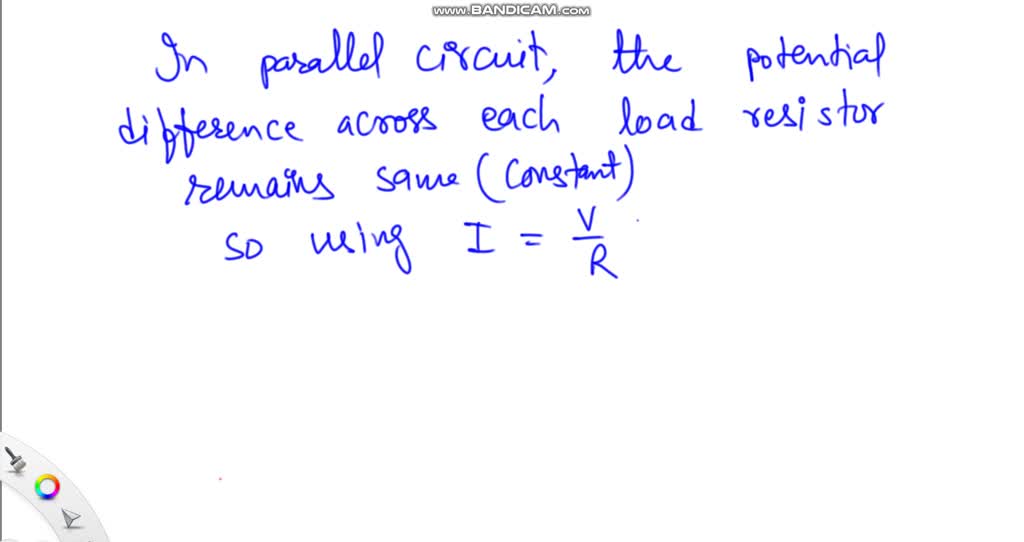 www.BANDICAM.com
In parallel circuit, the potential
difference across each load resistor
remains same (constant)
so using I = V/R